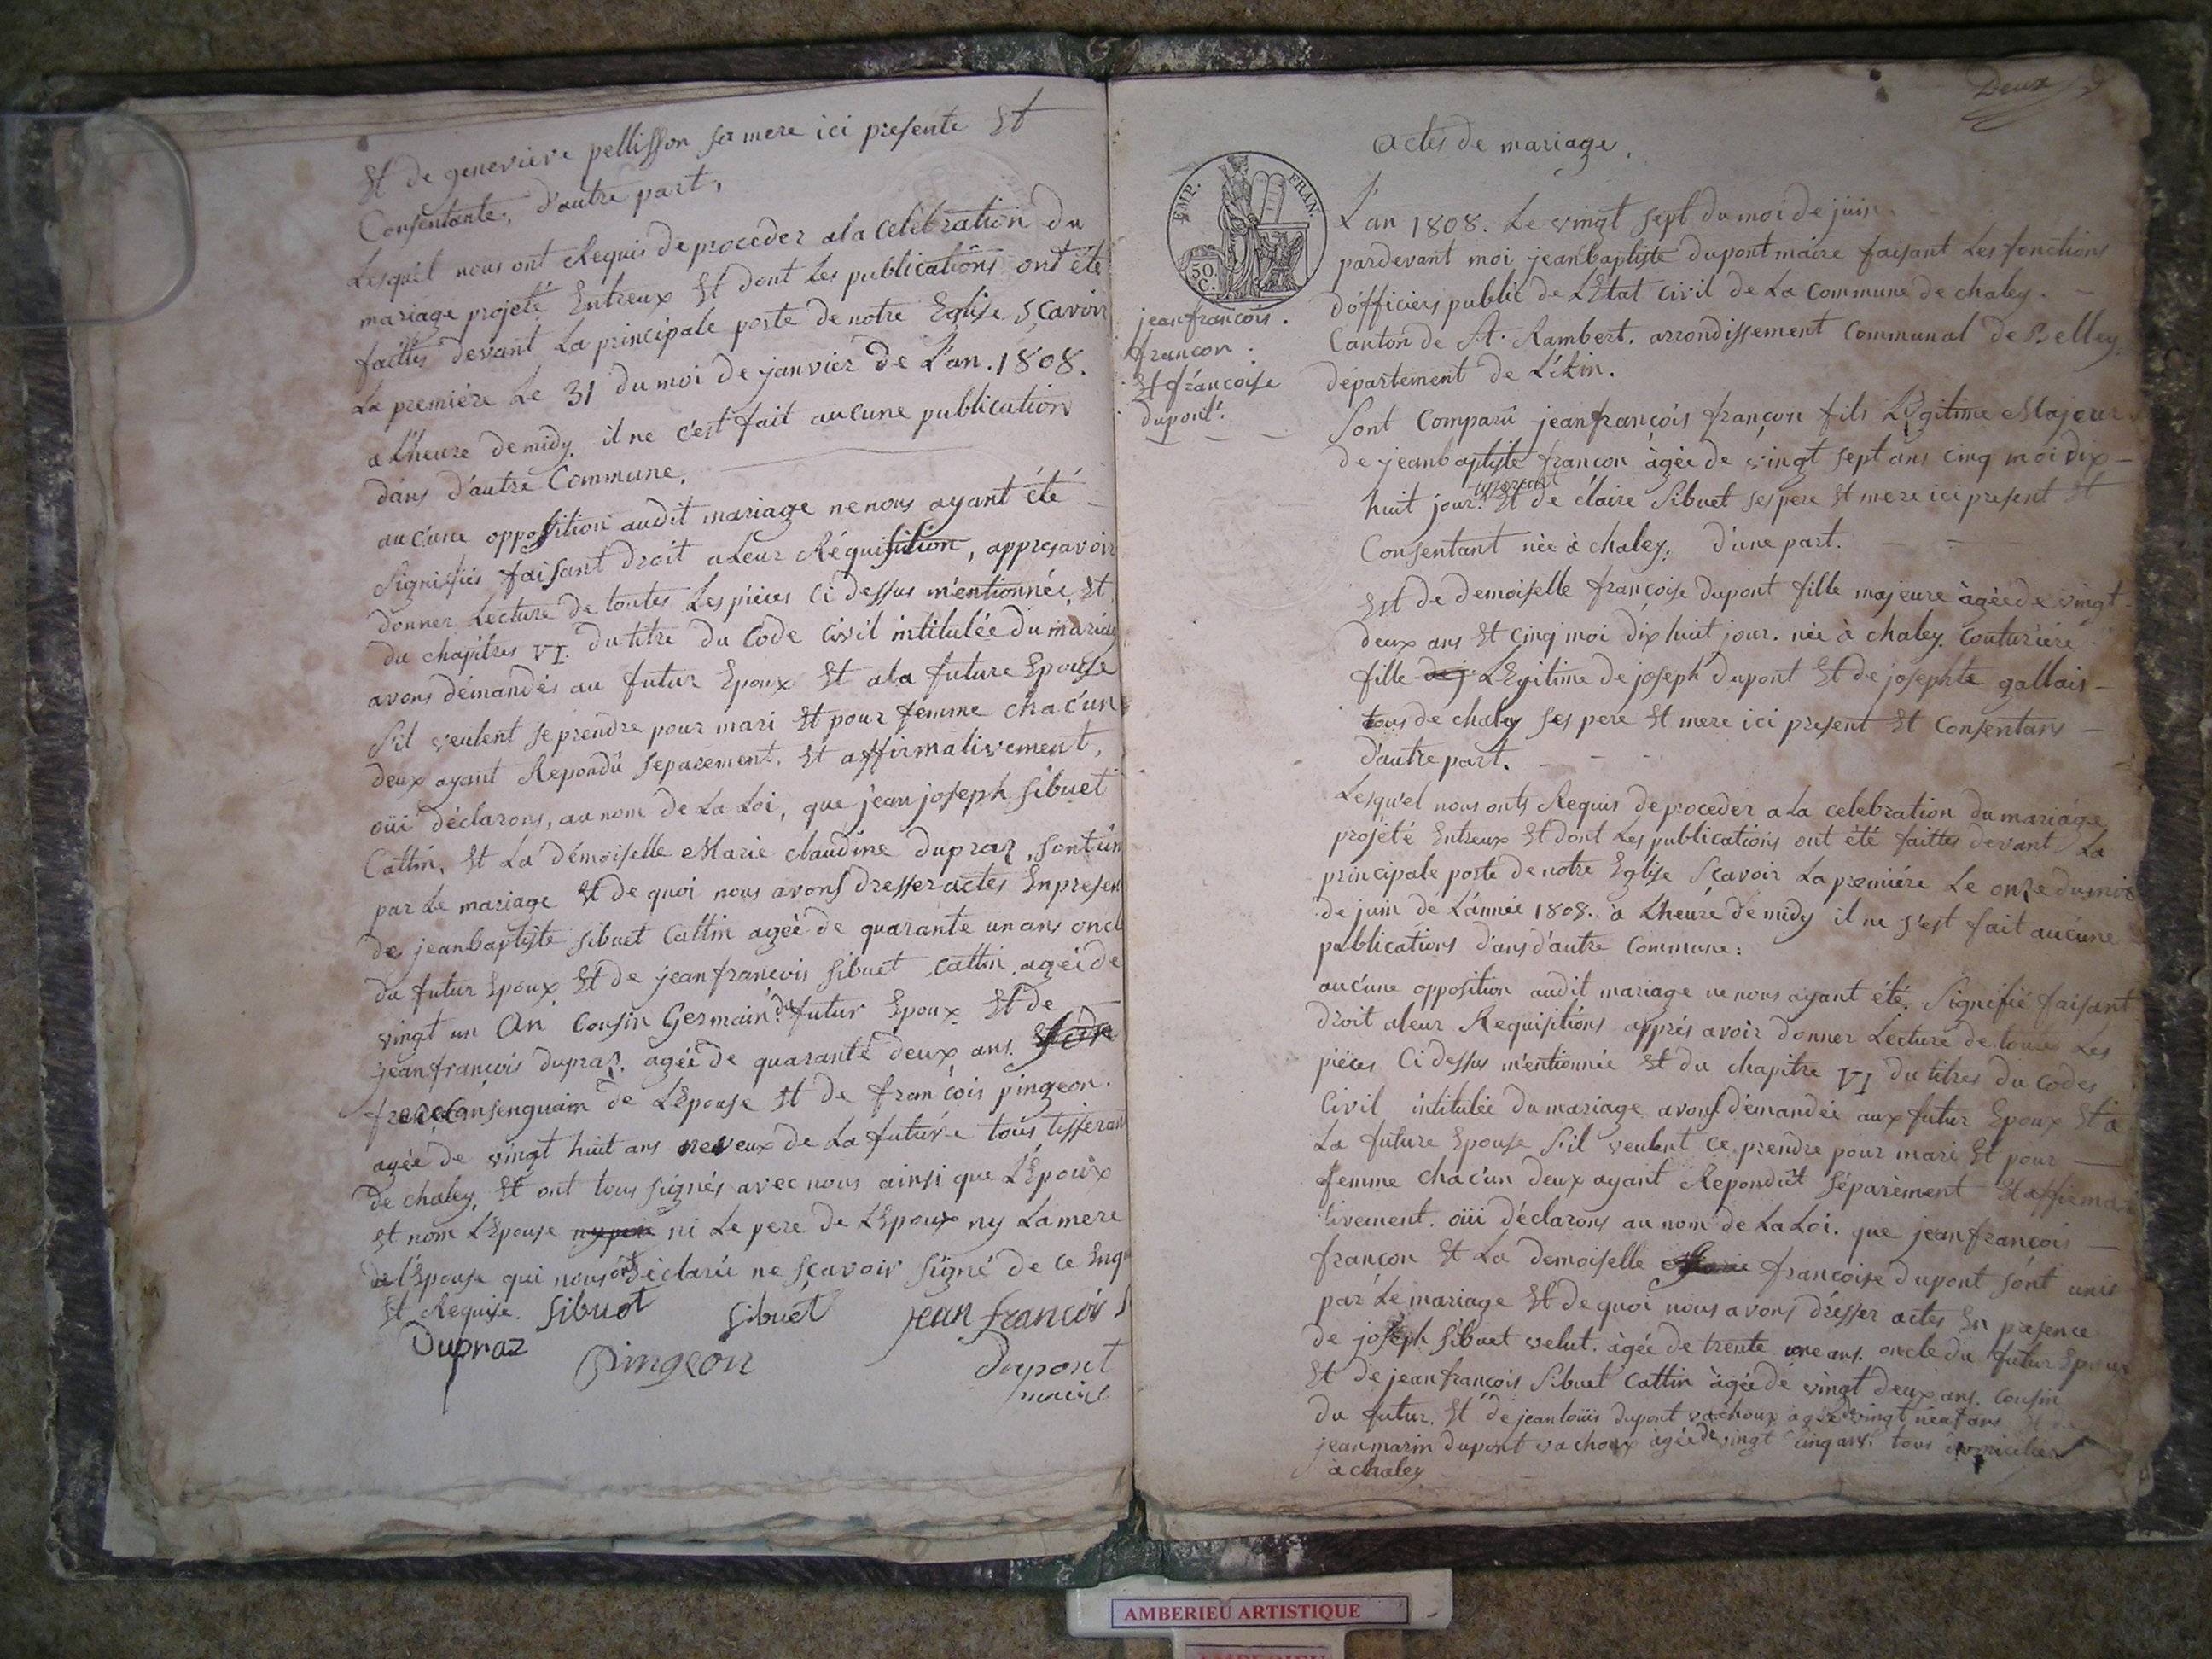 Et de genevieve pellisson sa mere ici presente Et
Consentante, d'autre part,
Lesquel nous ont Requis de proceder a la celebration du
mariage projeté Entreux Et dont Les publications ont été
faittes devant La principale porte de notre Eglise Sçavoir
La premiére Le 31 du moi de janvier de L'an. 1808.
a Lheure de midy. il ne c'est fait aucune publication
dans d'autre Commune.
aucune opposition audit mariage ne nous ayant été
Signifiés faisant droit a Leur Réquisition, appres avoir
donner Lecture de toutes Les piéces Ci dessus mentionnée, Et
du chapitres VI. du titre du Code Civil intitulée du mariage
avons démandés au futur Epoux Et a la future Epouse
S'il veulent se prendre pour mari Et pour femme chacun
deux ayant Repondû Separement, Et affirmativement,
oüi déclarons, au nom de La Loi, que jean joseph Sibuet
Cattin, Et La démoiselle Marie claudine dupraz, sont un
par Le mariage Et de quoi nous avons dresser actes En presen
de jeanbaptiste Sibuet Cattin agée de quarante un ans oncl
du futur Epoux Et de jeanfrançois Sibuet Cattin agée de
vingt un An Cousin Germain du futur Epoux Et de
jeanfrançois dupraz. agée de quarante deux ans.
frere Consenguain de L'Epouse Et de françois pingeon.
agée de vingt huit ans neveux de La future tous tisseran
de chaley, Et ont tous signés avec nous ainsi que L'Epoux
Et nom L'Epouse ni Le pere de L'Epoux ny La mere
de l'Epouse qui nous ont déclarée ne sçavoir signé de ce Enqu
Et Requise. Sibuet Sibuét jean françois S
Dupraz pingeon dupont
maire
Deux
Actes de mariage.
EMP. FRAN.
50.
C.
jeanfrançois.
françon.
Et françoise
dupont.
L'an 1808. Le vingt sept du moi de juin
pardevant moi jeanbaptiste dupont maire faisant Les fonctions
d'officiers public de L'Etat Civil de La Commune de chaley.
Canton de St. Rambert. arrondissement Communal de Belley
département de L'Ain.
Sont Comparû jeanfrançois françon fils Légitime Majeur
de jeanbaptiste francon âgée de vingt sept ans cinq moi dix-
tisserand
huit jour. Et de claire Sibuet ses pere Et mere ici present Et
Consentant née à chaley. d'une part.
Est de demoiselle françoise dupont fille majeure âgée de vingt
deux ans Et cinq moi dix huit jour. née à chaley. couturiére
fille Légitime de joseph dupont Et de josephte gallais
tous de chaley ses pere Et mere ici present Et Consentans
d'autre part.
Lesquel nous onts Requis de proceder a La celebration du mariage
projété Entreux Et dont Les publications ont été faittes devant La
principale porte de notre Eglise Sçavoir La premiére Le onze du moi
de juin de L'année 1808. à Lheure de midy il ne s'est fait aucune
publications dans d'autre Commune:
aucune opposition audit mariage ne nous ayant été. Signifié faisant
droit a Leur Requisitions apprés avoir donner Lecture de toutes Les
piéces Ci dessus mentionnée Et du chapitre VI du titres du Codes
Civil intitulée du mariage avons démandée aux futur Epoux Et a
La future Epouse S'il veulent ce prendre pour mari Et pour
femme chacun deux ayant Repondût Séparément Et affirma
tivement. oüi déclarons au nom de La Loi. que jeanfrançois
françon Et La demoiselle françoise dupont sont unis
par Le mariage Et de quoi nous avons dresser actes En presence
de joseph Sibuet velut. âgée de trente une ans. oncle du futur Epoux
Et de jeanfrançois Sibuet Cattin âgée de vingt deux ans. Cousin
du futur. Et de jean louis dupont vachoux âgée de vingt neuf ans
jean marin dupont vachoux âgée de vingt cinq ans. tous domicilier
à chaley
AMBERIEU ARTISTIQUE